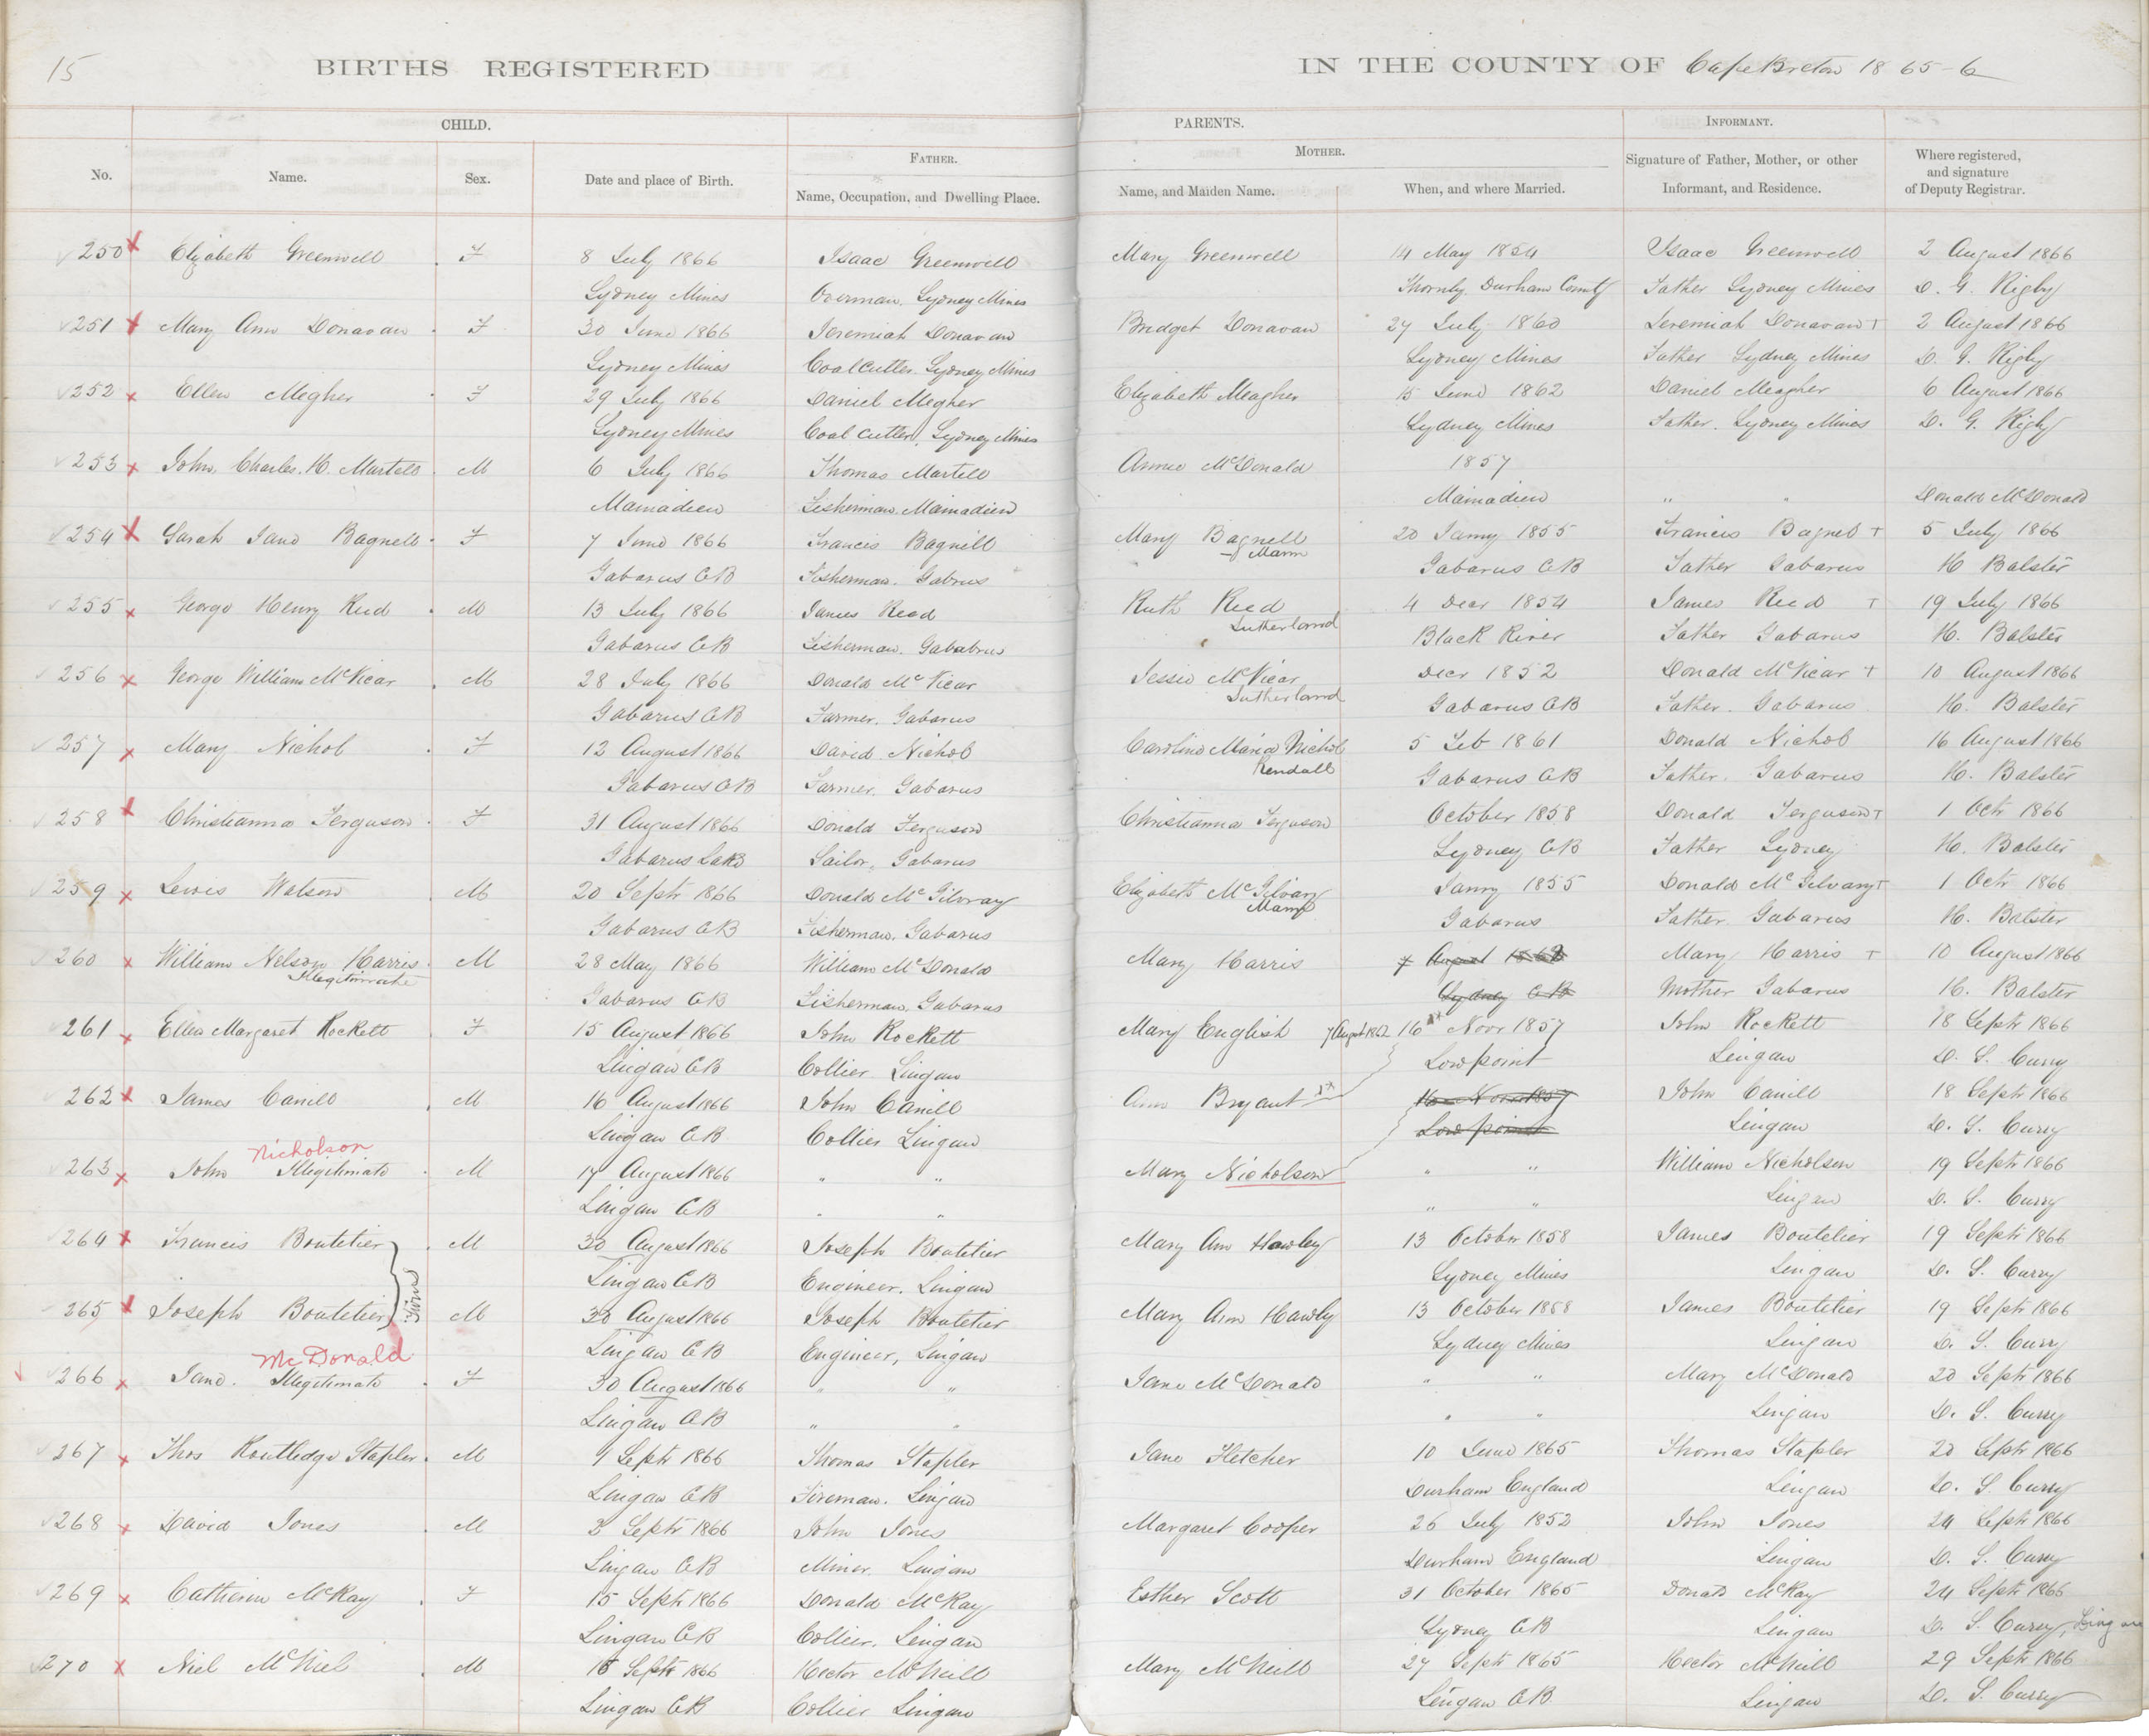 15
BIRTHS REGISTERED
IN THE COUNTY OF Cape Breton 1865-6
CHILD.
PARENTS.
INFORMANT.
No.
Name.
Sex.
Date and place of Birth.
FATHER.
Name, Occupation, and Dwelling Place.
MOTHER.
Name, and Maiden Name.
When, and where Married.
Signature of Father, Mother, or other
Informant, and Residence.
Where registered,
and signature
of Deputy Registrar.
250 Elizabeth Greenwell F 8 July 1866 Isaac Greenwell Mary Greenwell 14 May 1854 Isaac Greenwell 2 August 1866
Sydney Mines Overman. Sydney Mines Thornby. Durham County Father Sydney Mines D. G. Rigby
251 Mary Ann Donavan F 30 June 1866 Jeremiah Donavan Bridget Donavan 27 July 1860 Jeremiah Donavan + 2 August 1866
Sydney Mines Coal Cutter. Sydney Mines Sydney Mines Father Sydney Mines D. G. Rigby
252 Ellen Megher F 29 July 1866 Daniel Megher Elizabeth Meagher 15 June 1862 Daniel Meagher 6 August 1866
Sydney Mines Coal Cutter, Sydney Mines Sydney Mines Father. Sydney Mines D. G. Rigby
253 John, Charles. H. Martell M 6 July 1866 Thomas Martell Annie McDonald 1857
Mamadieu Fisherman. Mainadieu Mainadieu " " Donald McDonald
254 Sarah Jane Bagnell F 7 June 1866 Francis Bagnell Mary Bagnell 20 Janry 1855 Francis Bagnell + 5 July 1866
Mann
Gabarus CB Fisherman. Gabrus Gabarus CB Father Gabarus H Balster
255 George Henry Reed M 13 July 1866 James Reed Ruth Reed 4 Decr 1854 James Reed + 19 July 1866
Sutherland
Gabarus CB Fisherman. Gababrus Black River Father Gabarus H. Balster
256 George William McVicar M 28 July 1866 Donald McVicar Jessie McVicar Decr 1852 Donald McVicar + 10 August 1866
Sutherland
Gabarus CB Farmer. Gabarus Gabarus CB Father. Gabarus H. Balster
257 Mary Nichol F 12 August 1866 David Nichol Caroline Maria Nichol 5 Feb 1861 Donald Nichol 16 August 1866
Kendall
Gabarus CB Farmer. Gabarus Gabarus CB Father. Gabarus H. Balster
258 Christianna Ferguson F 31 August 1866 Donald Ferguson Christianna Ferguson October 1858 Donald Ferguson + 1 Octr 1866
Gabarus Lake Sailor, Gabarus Sydney CB Father Sydney H. Balster
259 Lewis Watson M 20 Septr 1866 Donald McGilvray Elizabeth McGilvary Janry 1855 Donald McGilvary + 1 Octr 1866
Mann
Gabarus CB Fisherman. Gabarus Gabarus Father Gabarus H. Balster
260 William Nelson Harris M 28 May 1866 William McDonald Mary Harris 7 August 1862 Mary Harris + 10 August 1866
Illegitimate
Gabarus CB Fisherman, Gabarus Sydney CB Mother Gabarus H. Balster
261 Ellen Margaret Rockett F 15 August 1866 John Rockett Mary English 7 August 1862 16 Novr 1857 John Rockett 18 Septr 1866
Lingan CB Collier Lingan Lowpoint Lingan D. S. Curry
262 James Canill M 16 August 1866 John Canill Ann Bryant 16 Novr 1857 John Canill 18 Septr 1866
Lingan CB Collier Lingan Lowpoint Lingan D. S. Curry
Nicholson
263 John Illegitimate M 17 August 1866 " " Mary Nicholson " " William Nicholson 19 Septr 1866
Lingan CB " " " " Lingan D. S. Curry
264 Francis Boutelier M 30 August 1866 Joseph Boutelier Mary Ann Hawley 13 October 1858 James Boutelier 19 Septr 1866
Lingan CB Engineer. Lingan Sydney Mines Lingan D. S. Curry
Twins
265 Joseph Boutelier M 30 August 1866 Joseph Boutelier Mary Ann Hawly 13 October 1858 James Boutelier 19 Septr 1866
Lingan CB Engineer, Lingan Sydney Mines Lingan D. S. Curry
McDonald
266 Jane. Illegitimate F 30 August 1866 " " Jane McDonald " " Mary McDonald 20 Septr 1866
Lingan CB " " " " Lingan D. S. Curry
267 Thos Routledge Stapler M 9 Septr 1866 Thomas Stapler Jane Fletcher 10 June 1865 Thomas Stapler 20 Septr 1866
Lingan CB Fireman. Lingan Durham England Lingan D. S. Curry
268 David Jones M 3 Septr 1866 John Jones Margaret Cooper 26 July 1852 John Jones 24 Septr 1866
Lingan CB Miner. Lingan Durham England Lingan D. S. Curry
269 Catherin McKay F 15 Septr 1866 Donald McKay Esther Scott 31 October 1865 Donald McKay 24 Septr 1866
Lingan CB Collier. Lingan Sydney CB Lingan D. S. Curry, Lingan
270 Niel McNiel M 15 Septr 1866 Hector McNeill Mary McNeill 27 Septr 1865 Hector McNeill 29 Septr 1866
Lingan CB Collier Lingan Lingan CB Lingan D. S. Curry